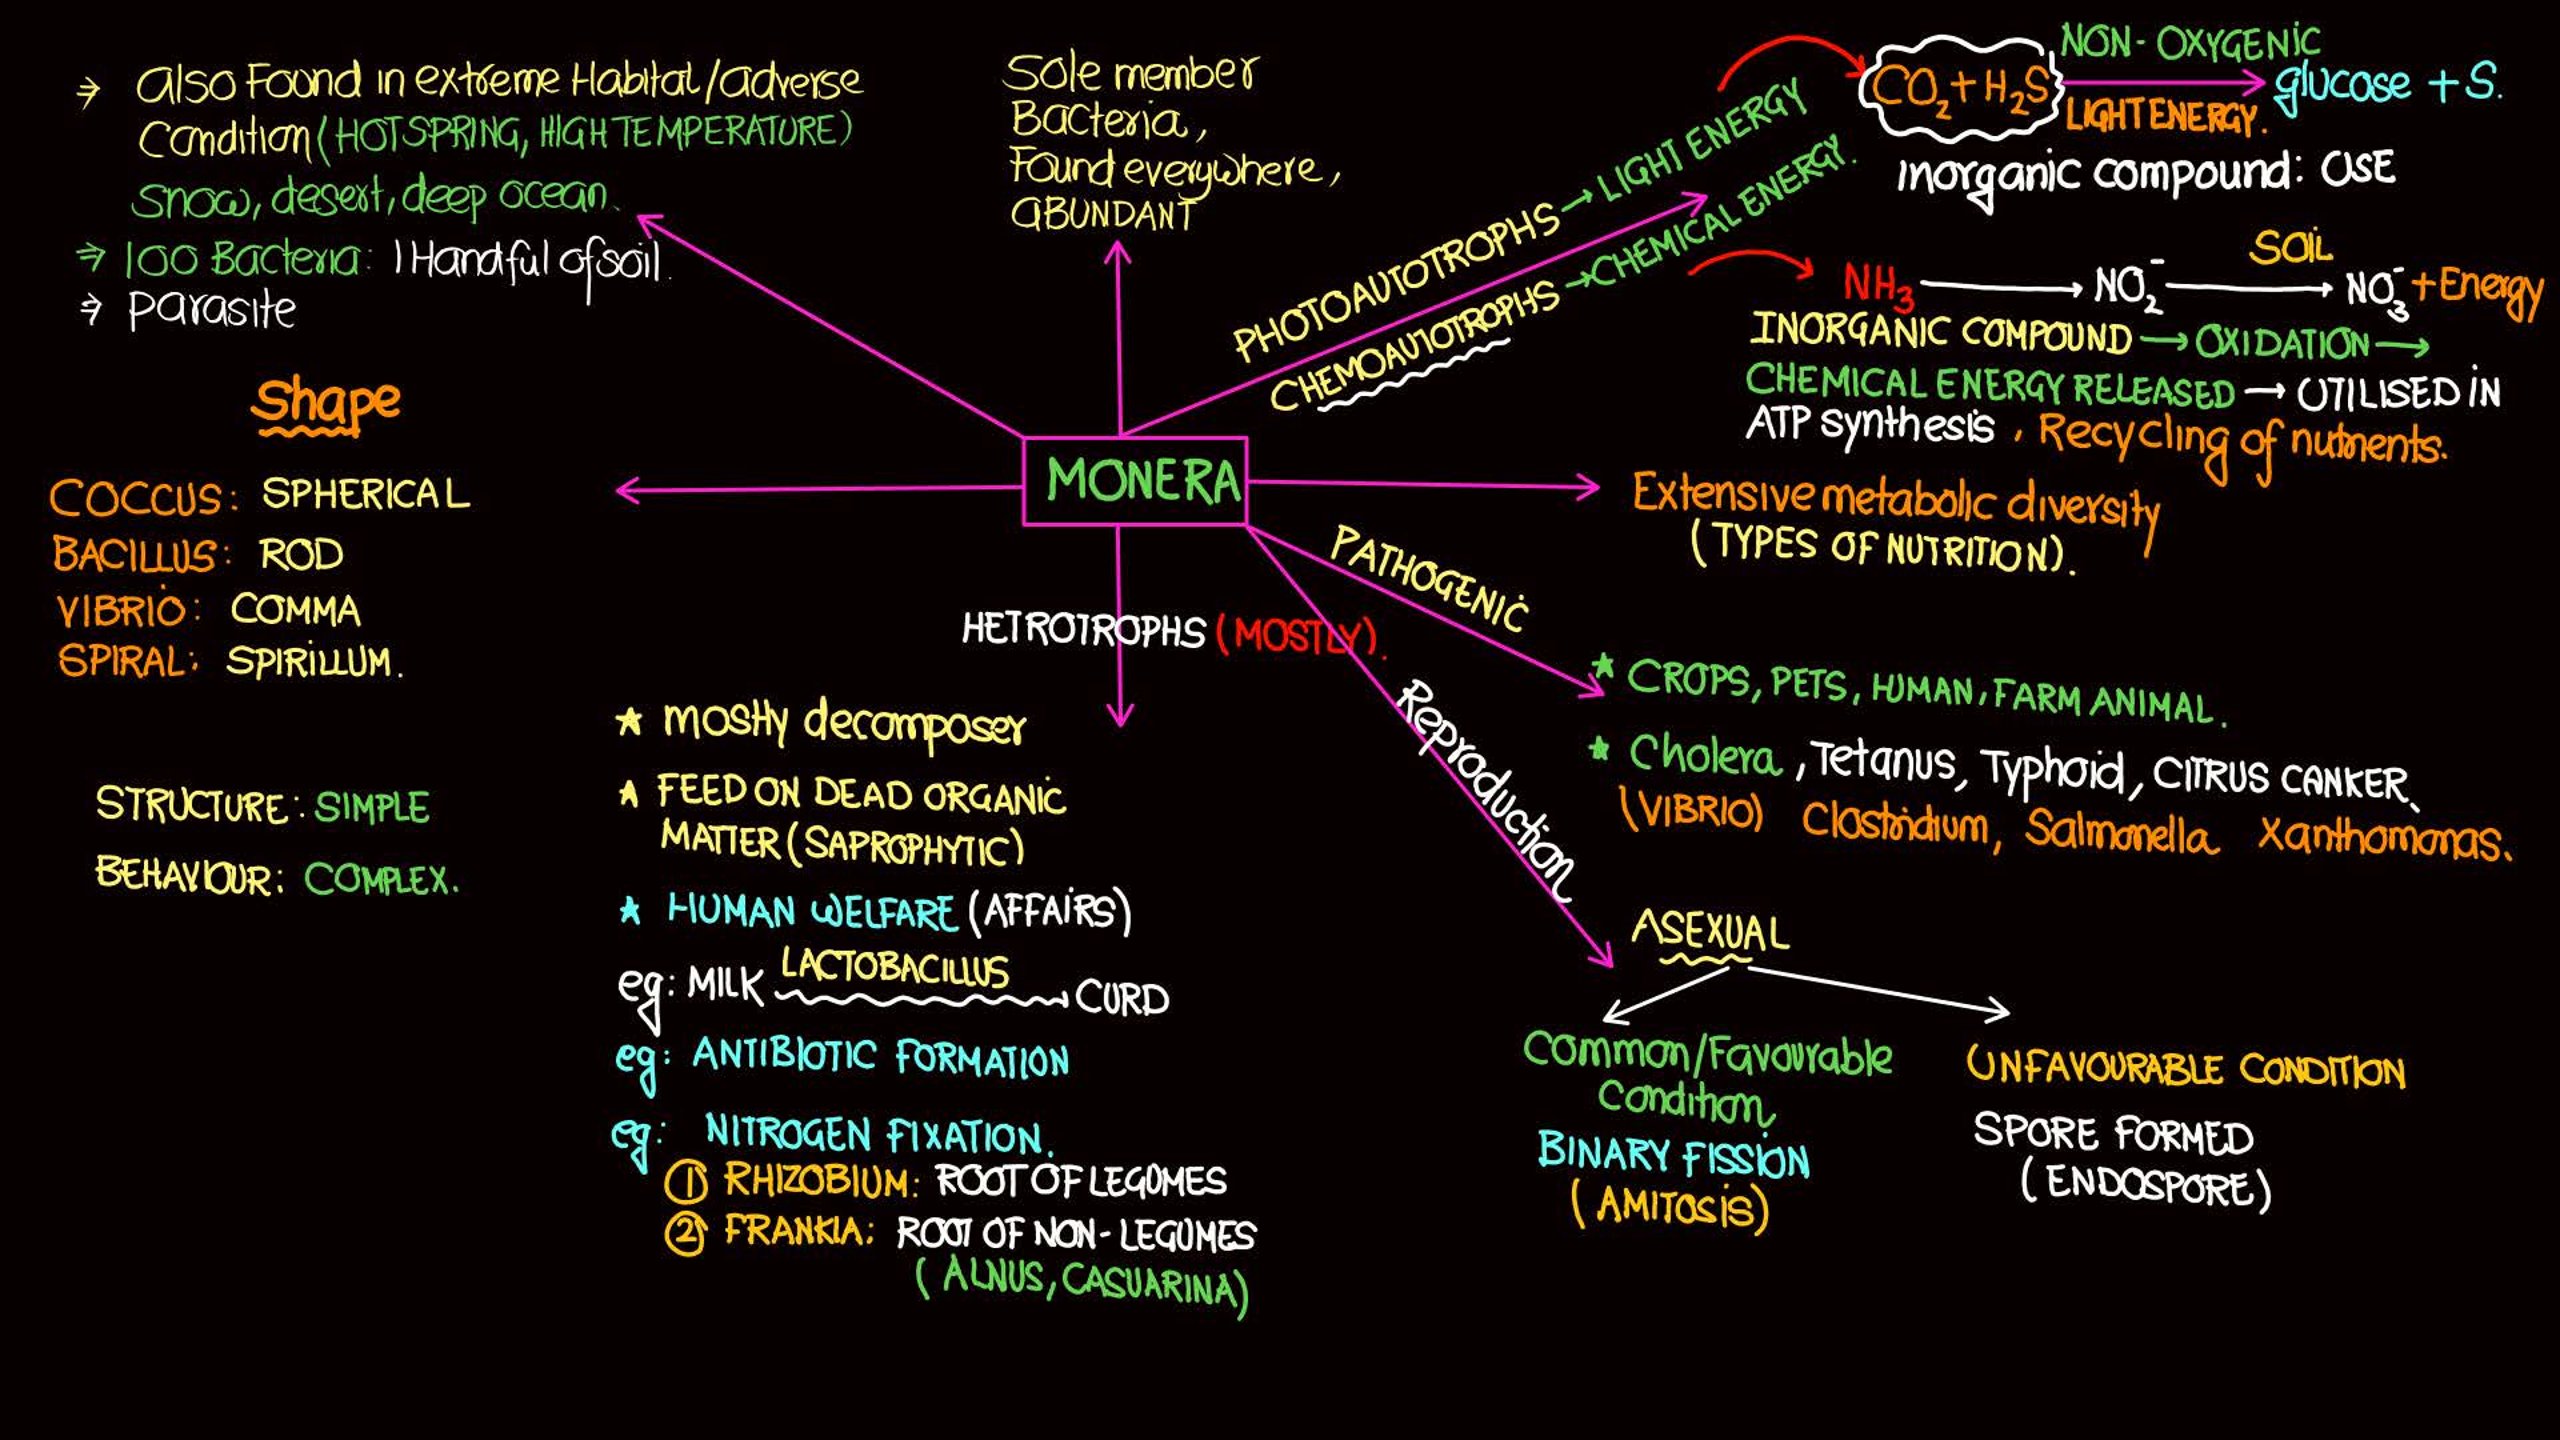 ⇒ Also Found in extreme Habital/adverse
Condition (HOTSPRING, HIGH TEMPERATURE)
Snow, desert, deep ocean.
⇒ 100 Bacteria: 1 Handful of soil.
⇒ Parasite
Sole member
Bacteria,
Found everywhere,
ABUNDANT
PHOTOAUTOTROPHS → LIGHT ENERGY
CHEMOAUTOTROPHS → CHEMICAL ENERGY.
NON-OXYGENIC
CO2 + H2S → glucose + S.
LIGHT ENERGY.
inorganic compound: USE
SOIL
NH3 → NO2- → NO3- + Energy
INORGANIC COMPOUND → OXIDATION →
CHEMICAL ENERGY RELEASED → UTILISED IN
ATP synthesis, Recycling of nutrients.
Shape
COCCUS: SPHERICAL
BACILLUS: ROD
VIBRIO: COMMA
SPIRAL: SPIRILLUM.
STRUCTURE: SIMPLE
BEHAVIOUR: COMPLEX.
MONERA
Extensive metabolic diversity
(TYPES OF NUTRITION).
HETROTROPHS (MOSTLY).
★ mostly decomposer
★ FEED ON DEAD ORGANIC
MATTER (SAPROPHYTIC)
★ HUMAN WELFARE (AFFAIRS)
LACTOBACILLUS
eg: MILK → CURD
eg: ANTIBIOTIC FORMATION
eg: NITROGEN FIXATION.
① RHIZOBIUM: ROOT OF LEGUMES
② FRANKIA: ROOT OF NON-LEGUMES
(ALNUS, CASUARINA)
PATHOGENIC
★ CROPS, PETS, HUMAN, FARM ANIMAL.
★ Cholera, Tetanus, Typhoid, CITRUS CANKER,
(VIBRIO) Clostridium, Salmonella Xanthomonas.
Reproduction
ASEXUAL
Common/Favourable
Condition,
BINARY FISSION
(AMITOSIS)
UNFAVOURABLE CONDITION
SPORE FORMED
(ENDOSPORE)